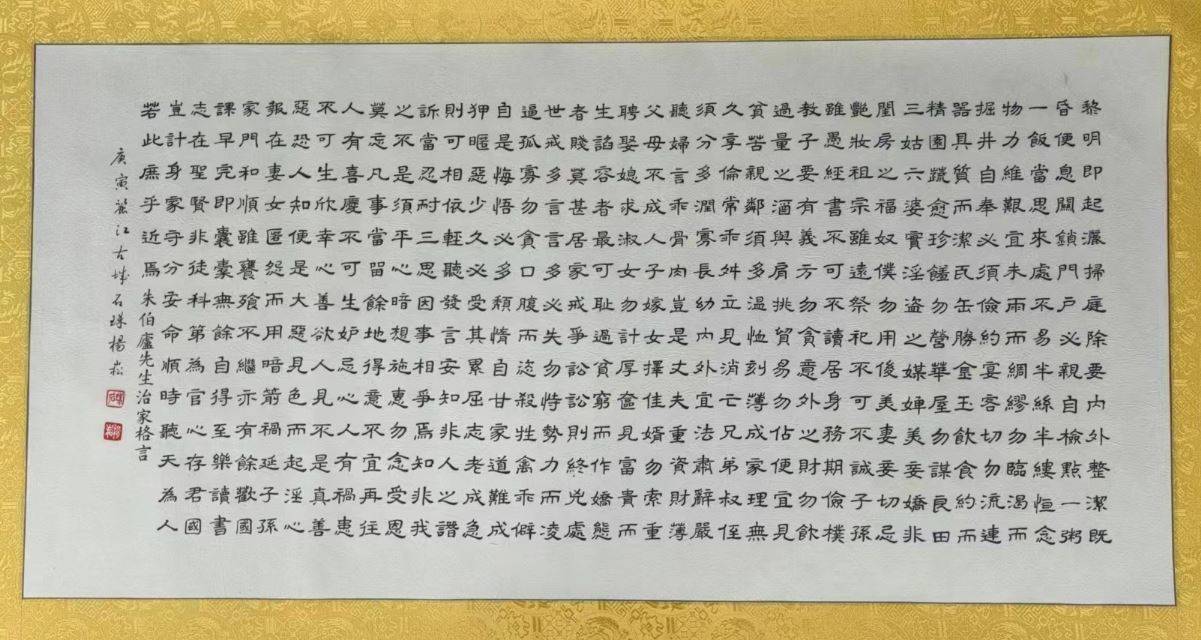 黎明即起灑掃庭除要內外整潔既
昏便息關鎖門戶必親自檢點一粥
一飯當思來處不易半絲半縷恒念
物力維艱宜未雨而綢繆勿臨渴而
掘井自奉必須儉約宴客切勿流連
器具質而潔瓦缶勝金玉飲食約而
精園蔬愈珍饈勿營華屋勿謀良田
三姑六婆實淫盜之媒婢美妾嬌非
閨房之福奴僕勿用後美妻妾切忌
艷妝祖宗雖遠祭祀不可不誠子孫
雖愚經書不可不讀居身務期儉樸
教子要有義方勿貪意外之財勿飲
過量之酒與肩挑貿易勿佔便宜見
貧苦親鄰須多溫恤刻薄成家理無
久享倫常乖舛立見消亡兄弟叔侄
須分多潤寡長幼內外宜法肅辭嚴
聽婦言乖骨肉豈是丈夫重資財薄
父母不成人子嫁女擇佳婿勿索重
聘娶媳求淑女勿計厚奩見富貴而
生諂容者最可恥過貧窮而作嬌態
者賤莫甚居家戒爭訟訟則終凶處
世戒多言言多必失勿恃勢力而凌
逼孤寡勿貪口腹而恣殺牲禽乖僻
自是悔悟必多頹惰自甘家道難成
狎暱惡少久必受其累屈志老成急
則可相依輕聽發言安知非人之譖
訴當忍耐三思因事相爭焉知非我
之不是須平心暗想施惠勿念受恩
莫忘凡事當留餘地得意不宜再往
人有喜慶不可生妒忌心人有禍患
不可生欣幸心善欲人見不是真善
惡恐人知便是大惡見色而起淫心
報在妻女匿怨而用暗箭禍延子孫
家門和順雖饔飧不繼亦有餘歡國
課早完即囊橐無餘自得至樂讀書
志在聖賢非徒科第為官心存君國
豈計身家守分安命順時聽天為人
若此庶乎近焉
朱伯廬先生治家格言
庚寅麗江古城石球楊崧